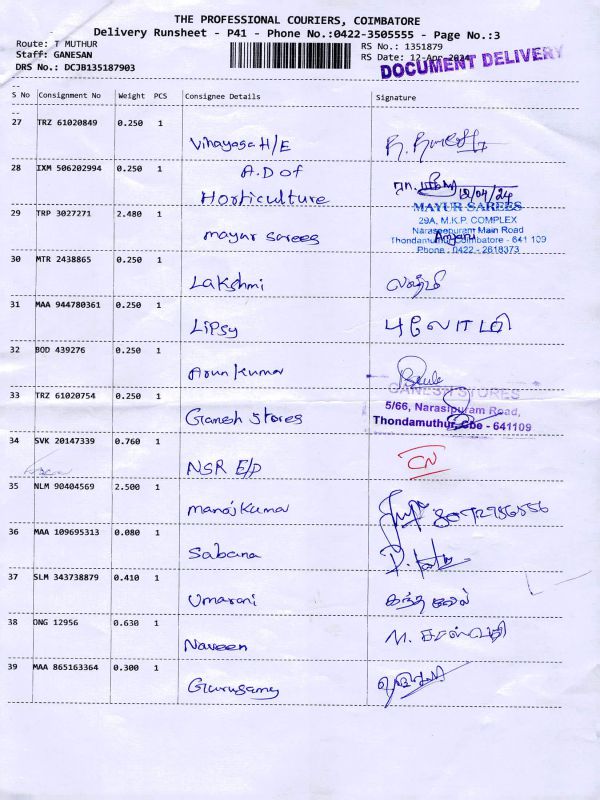 THE PROFESSIONAL COURIERS, COIMBATORE
Delivery Runsheet - P41 - Phone No.:0422-3505555 - Page No.:3
Route: T MUTHUR
RS No.: 1351879
Staff: GANESAN
RS Date: 12-Apr-2024
DOCUMENT DELIVERY
DRS No.: DCJB135187903
S No Consignment No Weight PCS Consignee Details Signature
27 TRZ 61020849 0.250 1
Vinayaga H/E
28 IXM 506202994 0.250 1
A.D of
Horticulture 12/04/24
29 TRP 3027271 2.480 1
mayur sarees
MAYUR SAREES
29A, M.K.P. COMPLEX
Naraseepuram Main Road
Thondamuthur, Coimbatore - 641 109
Phone : 0422 - 2618373
30 MTR 2438865 0.250 1
Lakshmi லஷ்மி
31 MAA 944780361 0.250 1
Lipsy புலோமி
32 BOD 439276 0.250 1
Arun kumar
33 TRZ 61020754 0.250 1
Ganesh stores
GANESH STORES
5/66, Narasipuram Road,
Thondamuthur, Cbe - 641109
34 SVK 20147339 0.760 1
NSR E/P CN
35 NLM 90404569 2.500 1
manoj kumar
36 MAA 109695313 0.080 1
Sabana
37 SLM 343738879 0.410 1
Umarani
38 ONG 12956 0.630 1
Naveen
39 MAA 865163364 0.300 1
Gurusamy